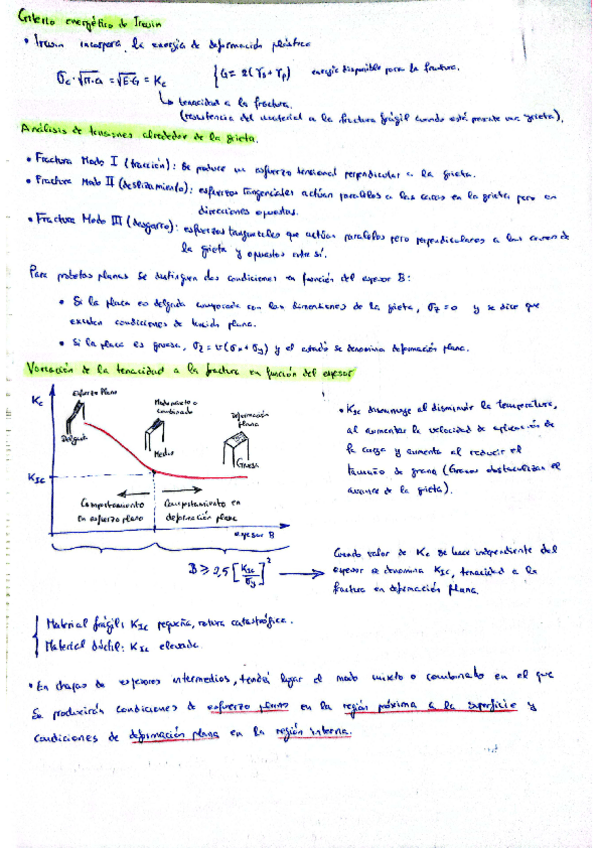 Criterio energético de Irwin
• Irwin incorpora la energía de deformación plástica
σc·√π·a = √E·G = Kc { G = 2(γs+γp) energía disponible para la fractura.
↳ tenacidad a la fractura.
(resistencia del material a la fractura frágil cuando está presente una grieta).
Análisis de tensiones alrededor de la grieta.
• Fractura Modo I (tracción): Se produce un esfuerzo tensional perpendicular a la grieta.
• Fractura Modo II (deslizamiento): esfuerzos tangenciales actúan paralelos a las caras en la grieta pero en
direcciones opuestas.
• Fractura Modo III (desgarro): esfuerzos tangenciales que actúan paralelos pero perpendiculares a las caras de
la grieta y opuestos entre sí.
Para probetas planas se distinguen dos condiciones en función del espesor B:
• Si la placa es delgada comparada con las dimensiones de la grieta, σz=0 y se dice que
existen condiciones de tensión plana.
• Si la placa es gruesa, σz=ν(σx+σy) y el estado se denomina deformación plana.
Variación de la tenacidad a la fractura en función del espesor
Kc
Esfuerzo Plano
Delgada
Modo mixto o
combinado
Medio
Deformación
plana
Gruesa
KIc
Comportamiento
en esfuerzo plano
Comportamiento en
deformación plana
espesor B
• KIc disminuye al disminuir la temperatura,
al aumentar la velocidad de aplicación de
la carga y aumenta al reducir el
tamaño de grano (Granos obstaculizan el
avance de la grieta).
B ≥ 2,5 [KIc/σy]² ⟶
Cuando valor de Kc se hace independiente del
espesor se denomina KIc, tenacidad a la
fractura en deformación plana.
{ Material frágil: KIc pequeña, rotura catastrófica.
Material dúctil: KIc elevada.
• En chapas de espesores intermedios, tendrá lugar el modo mixto o combinado en el que
se producirán condiciones de esfuerzo plano en la región próxima a la superficie y
condiciones de deformación plana en la región interna.